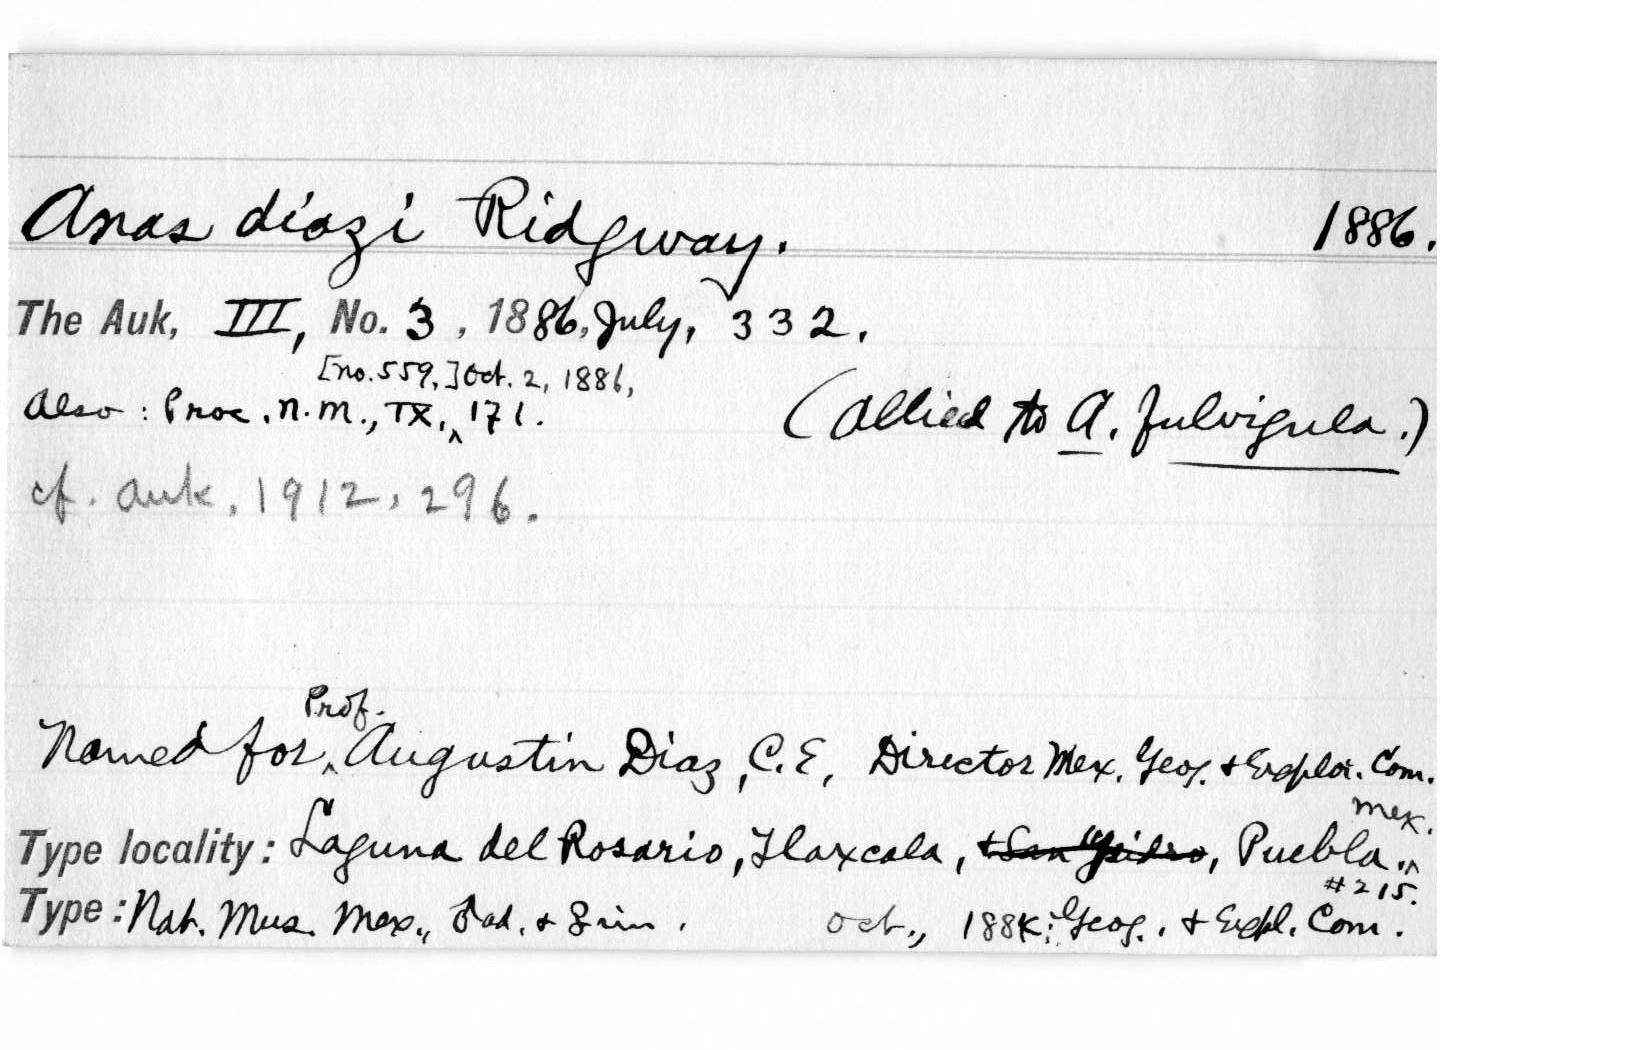 Anas diazi Ridgway. 1886.
The Auk, III, No. 3, 1886, July, 332.
[no. 559,] Oct. 2, 1886,
Also: Proc. N.M., IX, ^ 171. (Allied to A. fulvigula.)
cf. Auk, 1912, 296.
Prof.
Named for ^ Augustin Diaz, C.E, Director Mex. Geog. & Explor. Com.
Mex.
Type locality: Laguna del Rosario, Tlaxcala, & San Ysidro, Puebla. ^
#215.
Type: Nat. Mus. Mex., Oct., Geog. & Expl. Com.